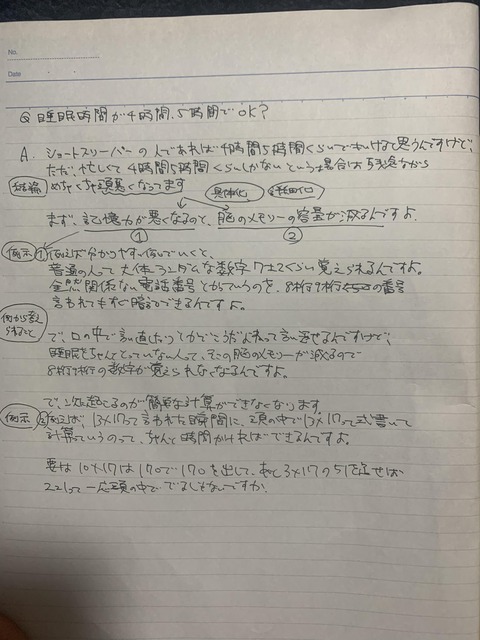 No.
Date
Q 睡眠時間が4時間、5時間でOK?
A. ショートスリーパーの人であれば4時間5時間くらいでいけると思うんですけど、
ただ、忙しくて4時間5時間くらいしかないという場合は残念ながら
結論 めちゃくちゃ頭悪くなってます
具体化 詳細化
まず、記憶力が悪くなるのと、脳のメモリーの容量が減るんですよ。
① ②
例示 ① 例えば分かりやすい例でいくと、
普通の人って大体ランダムな数字7±2くらい覚えられるんですよ。
全然関係ない電話番号とかっていうのを、8桁9桁の番号
言われてもすぐ暗記できるんですよ。
何から変えられること
で、口の中で言い直したりとかでこうだよねって言い返せるんですけど、
睡眠をちゃんととっていない人って、そこの脳のメモリーが減るので
8桁9桁の数字が覚えられなくなるんですよ。
で、次起こるのが簡単な計算ができなくなります。
例示 ② 例えば、13×17って言われた瞬間に、頭の中で13×17って式書いて
計算っていうのって、ちゃんと時間かければできるんですよ。
要は10×17は170で170を出して、あと3×17の51を足せば
221って一応頭の中ででるじゃないですか